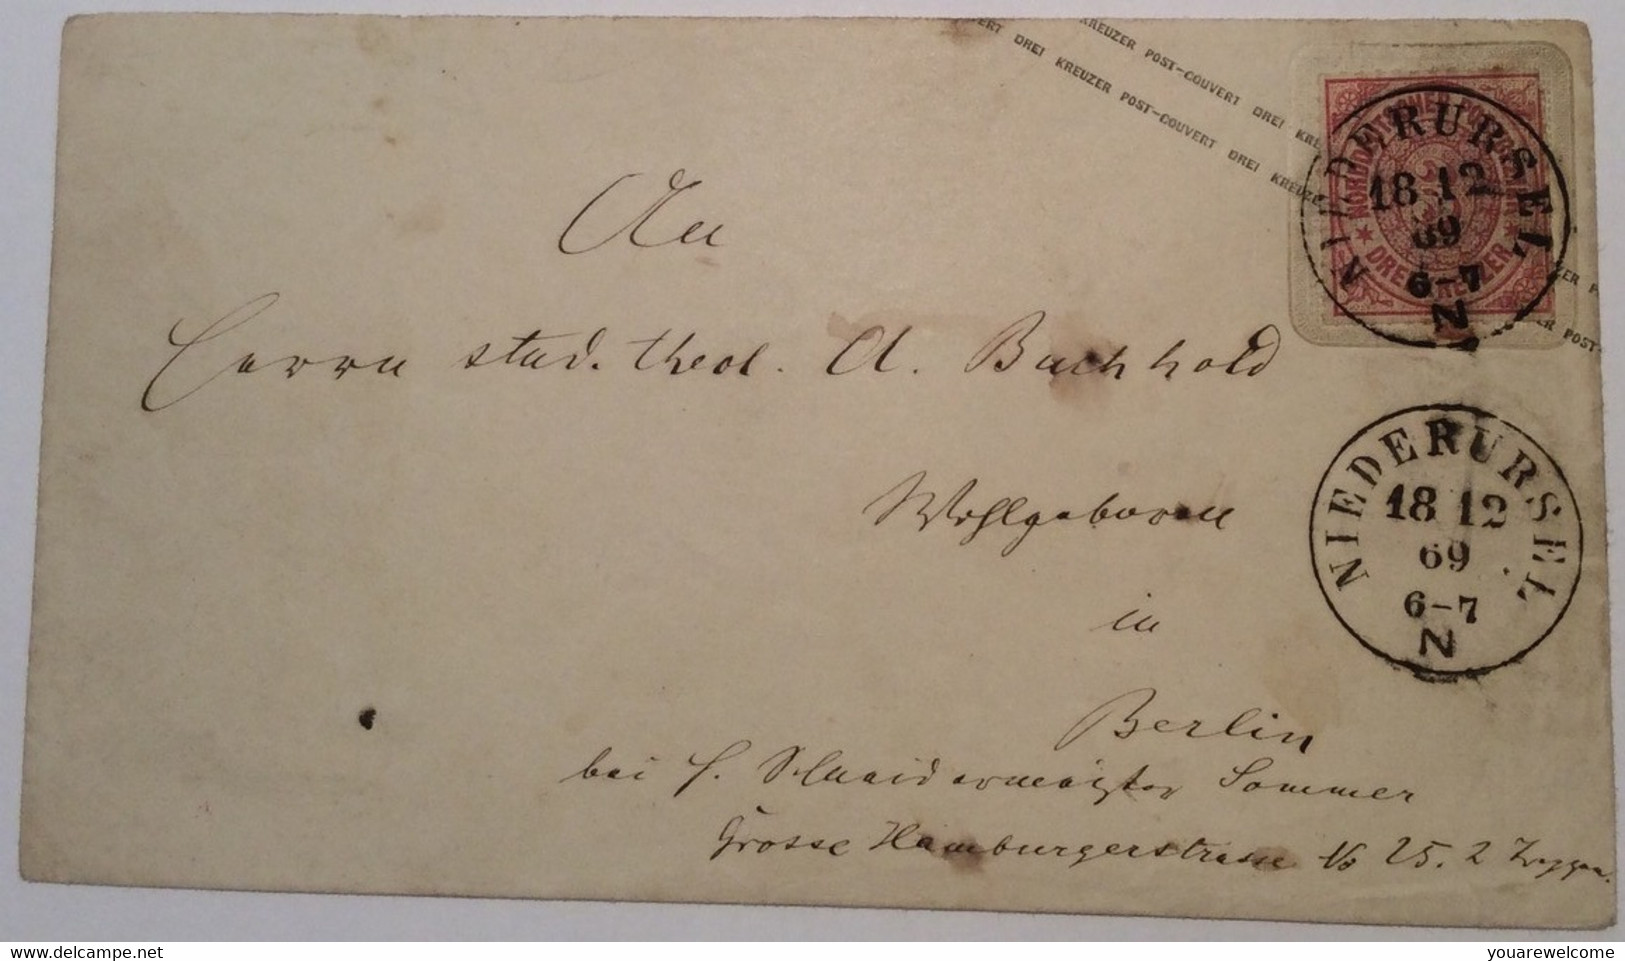 VERT DREI KREUZER POST-COUVERT DREI KREUZER
KREUZER POST-COUVERT DREI KRE
NORDDEUTSCHER POSTBEZIRK
DREI KREUZER
NIEDERURSEL
18 12
69
6-7
N
ZER P
ZER POST-
An
Herrn stud. theol. A. Buchhold
Wohlgeboren
in
Berlin
bei H. Schneidermeister Sommer
Grosse Hamburgerstrasse No 25. 2 Treppen.
NIEDERURSEL
18 12
69
6-7
N
delcampe.net
youarewelcome